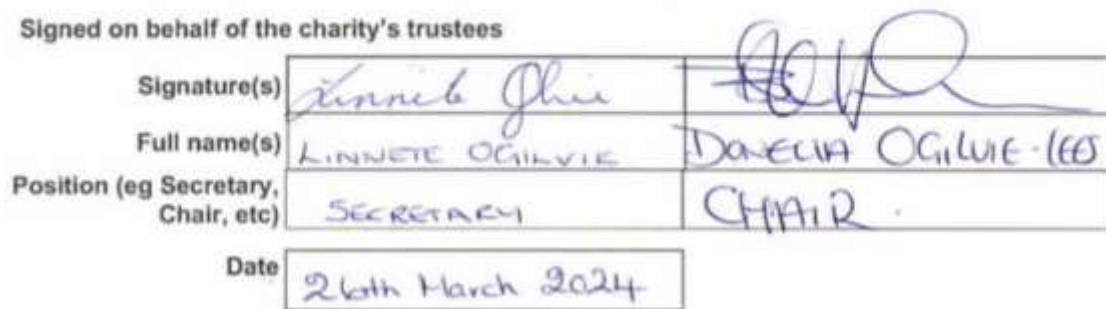 Signed on behalf of the charity's trustees
Signature(s)
Full name(s) LINNETE OGILVIE DONECIA OGILVIE-LEES
Position (eg Secretary,
Chair, etc) SECRETARY CHAIR.
Date 26th March 2024